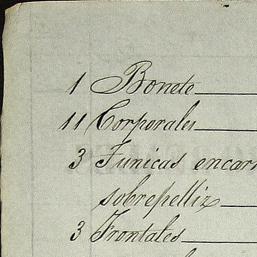 1 Bonete
11 Corporales
3 Tunicas encar
sobrepelliz
3 Frontales